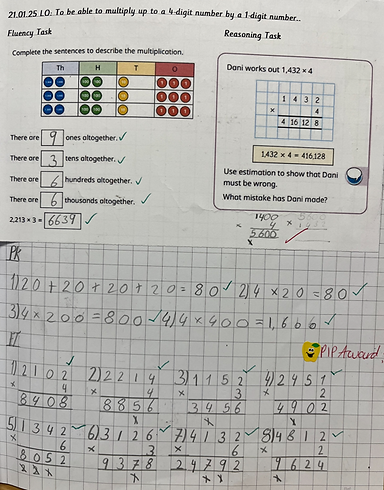 21.01.25 LO: To be able to multiply up to a 4-digit number by a 1-digit number..
Fluency Task
Reasoning Task
Complete the sentences to describe the multiplication.
Th H T O
There are 9 ones altogether. ✓
There are 3 tens altogether. ✓
There are 6 hundreds altogether. ✓
There are 6 thousands altogether. ✓
2,213 × 3 = 6639 ✓
Dani works out 1,432 × 4
1 4 3 2
× 4
4 16 12 8
1,432 × 4 = 416,128
Use estimation to show that Dani
must be wrong.
What mistake has Dani made?
1400
× 4
5600
PK
1) 20 + 20 + 20 + 20 = 80 ✓ 2) 4 × 20 = 80 ✓
3) 4 × 200 = 800 ✓ 4) 4 × 400 = 1,600 ✓
PIP Award!
1) 2102 ✓
× 4
8408
2) 2214 ✓
× 4
8856
3) 1152 ✓
× 3
3456
4) 2451 ✓
× 2
4902
5) 1342 ✓
× 6
8052
6) 3126 ✓
× 3
9378
7) 4132 ✓
× 6
24792
8) 4812 ✓
× 2
9624